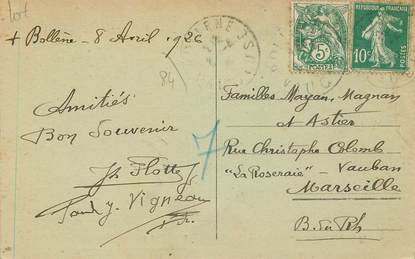 + Bollène - 8 Avril, 1926
84
Amitiés
Bon Souvenir
Flotte
Vigneau
7
5c
POSTES
REPUBLIQUE FRANÇAISE
10c
POSTES
Familles Mayan, Magnan
et Astier
Rue Christophe Colomb
"La Roseraie" - Vauban
Marseille
B.du Rh